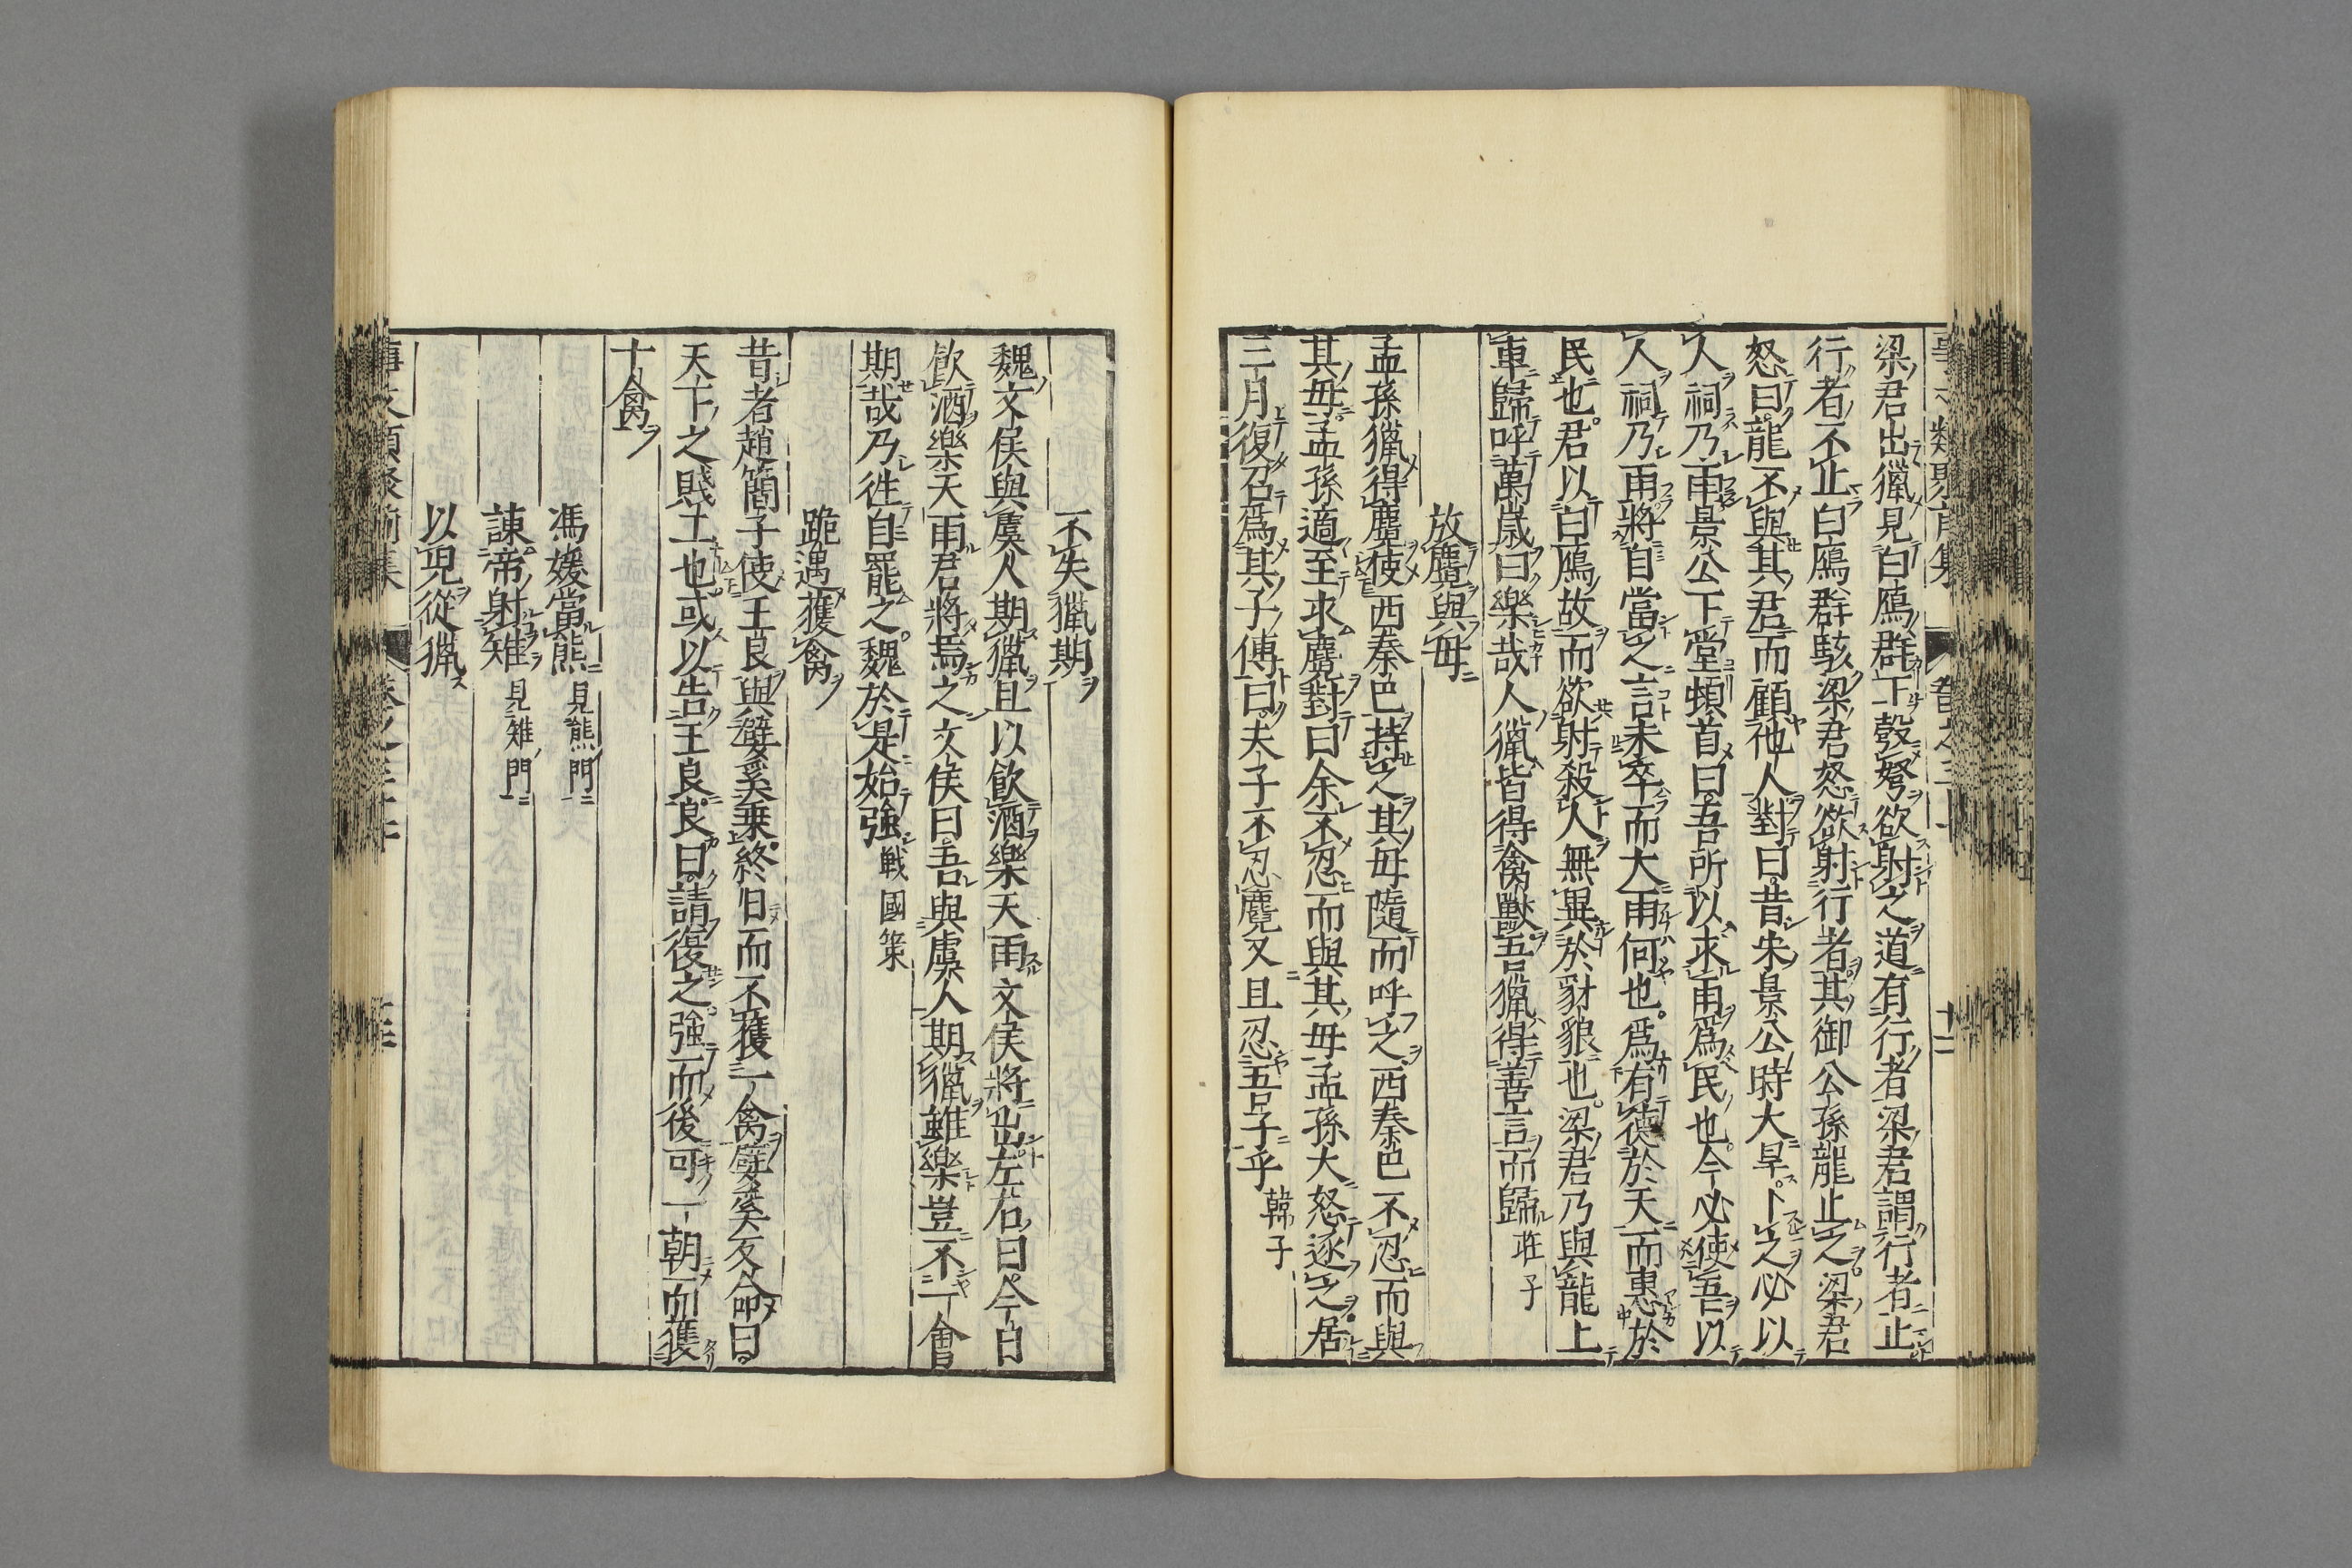 梁君出獵見白鴈群下彀弩欲射之道有行者梁君謂行者止
行者不止白鴈群駭梁君怒欲射行者其御公孫龍止之梁君
怒曰龍不與其君而顧他人對曰昔宋景公時大旱卜之必以
人祠乃雨景公下堂頓首曰吾所以求雨爲民也今必使吾以
人祠乃雨將自當之言未卒而大雨何也爲有德於天而惠於
民也君以白鴈故而欲射殺人無異於豺狼也梁君乃與龍上
車歸呼萬歲曰樂哉人獵皆得禽獸吾獵得善言而歸 莊子
放麑與母
孟孫獵得麑使西秦巴持之其母隨而呼之西秦巴不忍而與
其母孟孫適至求麑對曰余不忍而與其母孟孫大怒逐之居
三月復召爲其子傅曰夫子不忍麑又且忍吾子乎 韓子
不失獵期
魏文侯與虞人期獵且以飮酒樂天雨文侯將出左右曰今日
飮酒樂天雨君將焉之文侯曰吾與虞人期獵雖樂豈不一會
期哉乃往自罷之魏於是始強 戰國策
詭遇獲禽
昔者趙簡子使王良與嬖奚乗終日而不獲一禽嬖奚反命曰
天下之賤工也或以告王良良曰請復之強而後可一朝而獲
十禽
馮媛當熊 見熊門
諫帝射雉 見雉門
以兒從獵